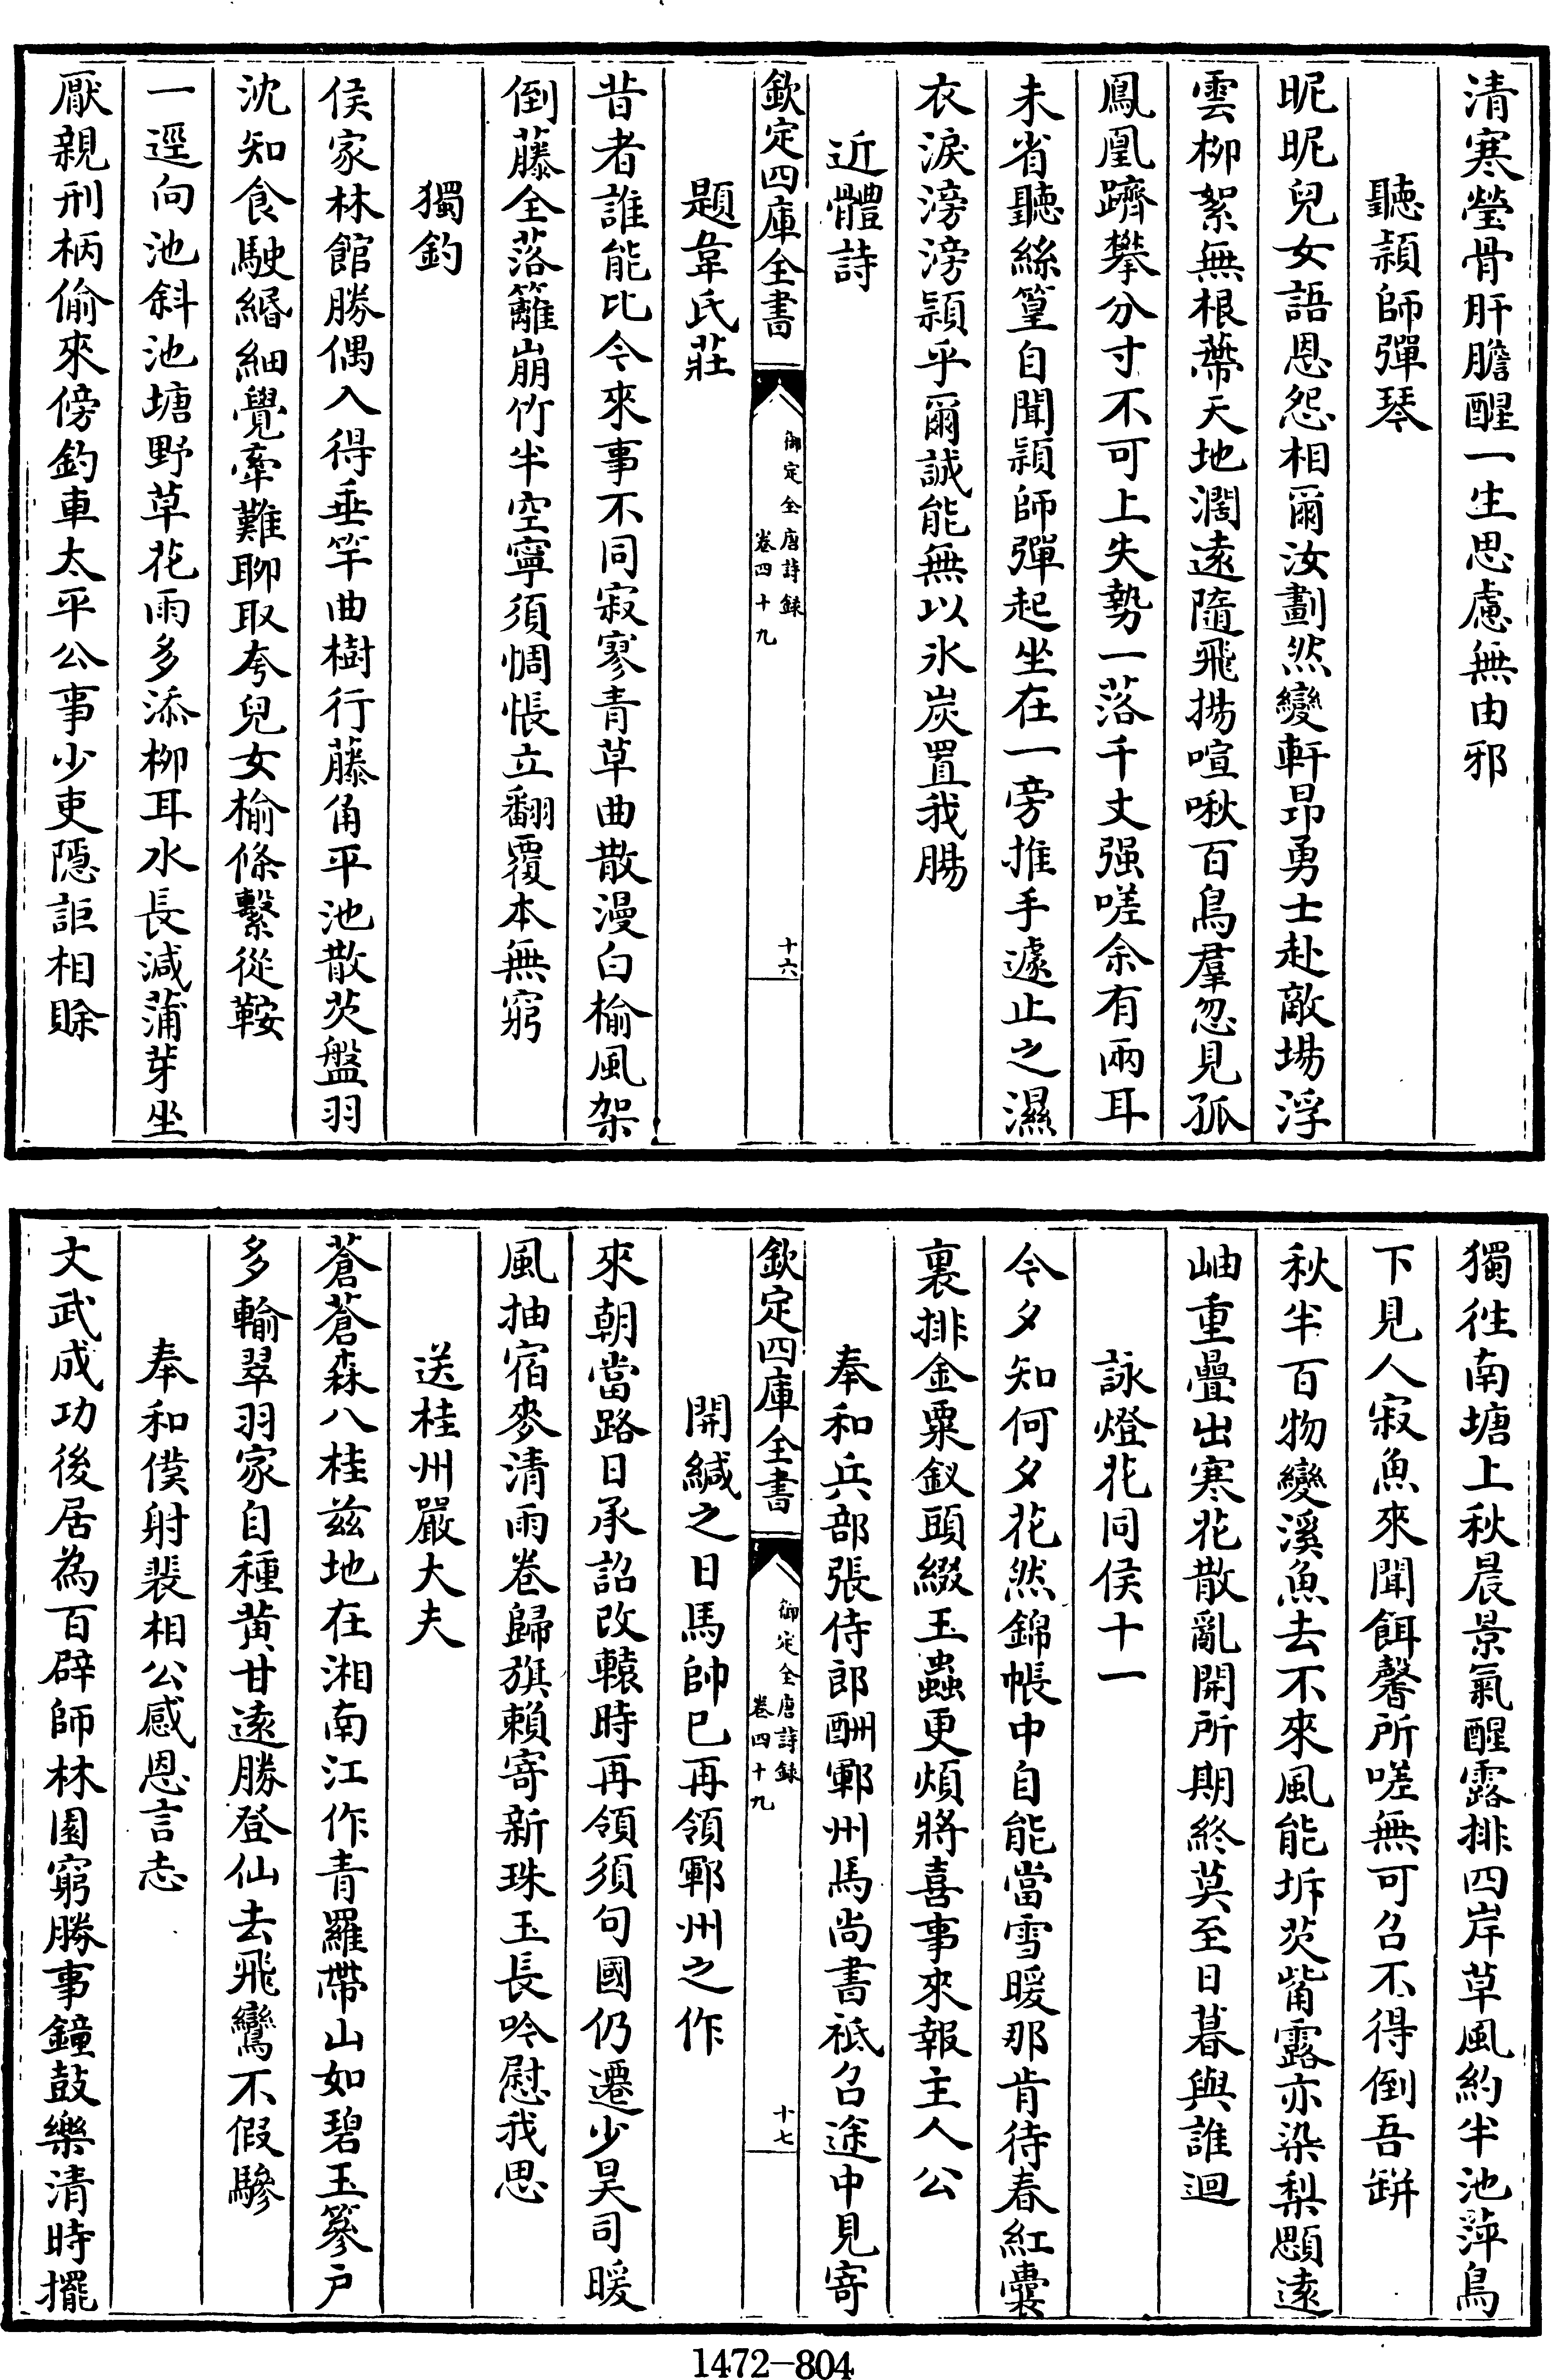 清寒瑩骨肝膽醒一生思慮無由邪
聽頴師彈琴
昵昵兒女語恩怨相爾汝劃然變軒昂勇士赴敵場浮
雲柳絮無根蔕天地濶遠隨飛揚喧啾百鳥羣忽見孤
鳳凰躋攀分寸不可上失勢一落千丈强嗟余有兩耳
未省聽絲篁自聞頴師彈起坐在一旁推手遽止之濕
衣淚滂滂頴乎爾誠能無以氷炭置我腸
近體詩
欽定四庫全書
御定全唐詩錄
卷四十九
十六
題韋氏莊
昔者誰能比今來事不同寂寥青草曲散漫白榆風架
倒藤全落籬崩竹半空寧須惆悵立翻覆本無窮
獨釣
侯家林館勝偶入得垂竿曲樹行藤角平池散芡盤羽
沈知食駛緡細覺牽難聊取夸兒女榆條繫從鞍
一逕向池斜池塘野草花雨多添柳耳水長減蒲芽坐
厭親刑柄偷來傍釣車太平公事少吏隱詎相賒
獨徃南塘上秋晨景氣醒露排四岸草風約半池萍鳥
下見人寂魚來聞餌馨所嗟無可召不得倒吾缾
秋半百物變溪魚去不來風能坼芡觜露亦染梨顋遠
岫重疊出寒花散亂開所期終莫至日暮與誰迴
詠燈花同侯十一
今夕知何夕花然錦帳中自能當雪暖那肯待春紅囊
裏排金粟釵頭綴玉蟲更煩將喜事來報主人公
奉和兵部張侍郎酬鄆州馬尚書祗召途中見寄
欽定四庫全書
御定全唐詩錄
卷四十九
十七
開緘之日馬帥已再領鄆州之作
來朝當路日承詔改轅時再領須句國仍遷少昊司暖
風抽宿麥清雨卷歸旗賴寄新珠玉長吟慰我思
送桂州嚴大夫
蒼蒼森八桂兹地在湘南江作青羅帶山如碧玉篸戸
多輸翠羽家自種黄甘遠勝登仙去飛鸞不假驂
奉和僕射裴相公感恩言志
文武成功後居為百辟師林園窮勝事鐘鼓樂清時擺
1472-804